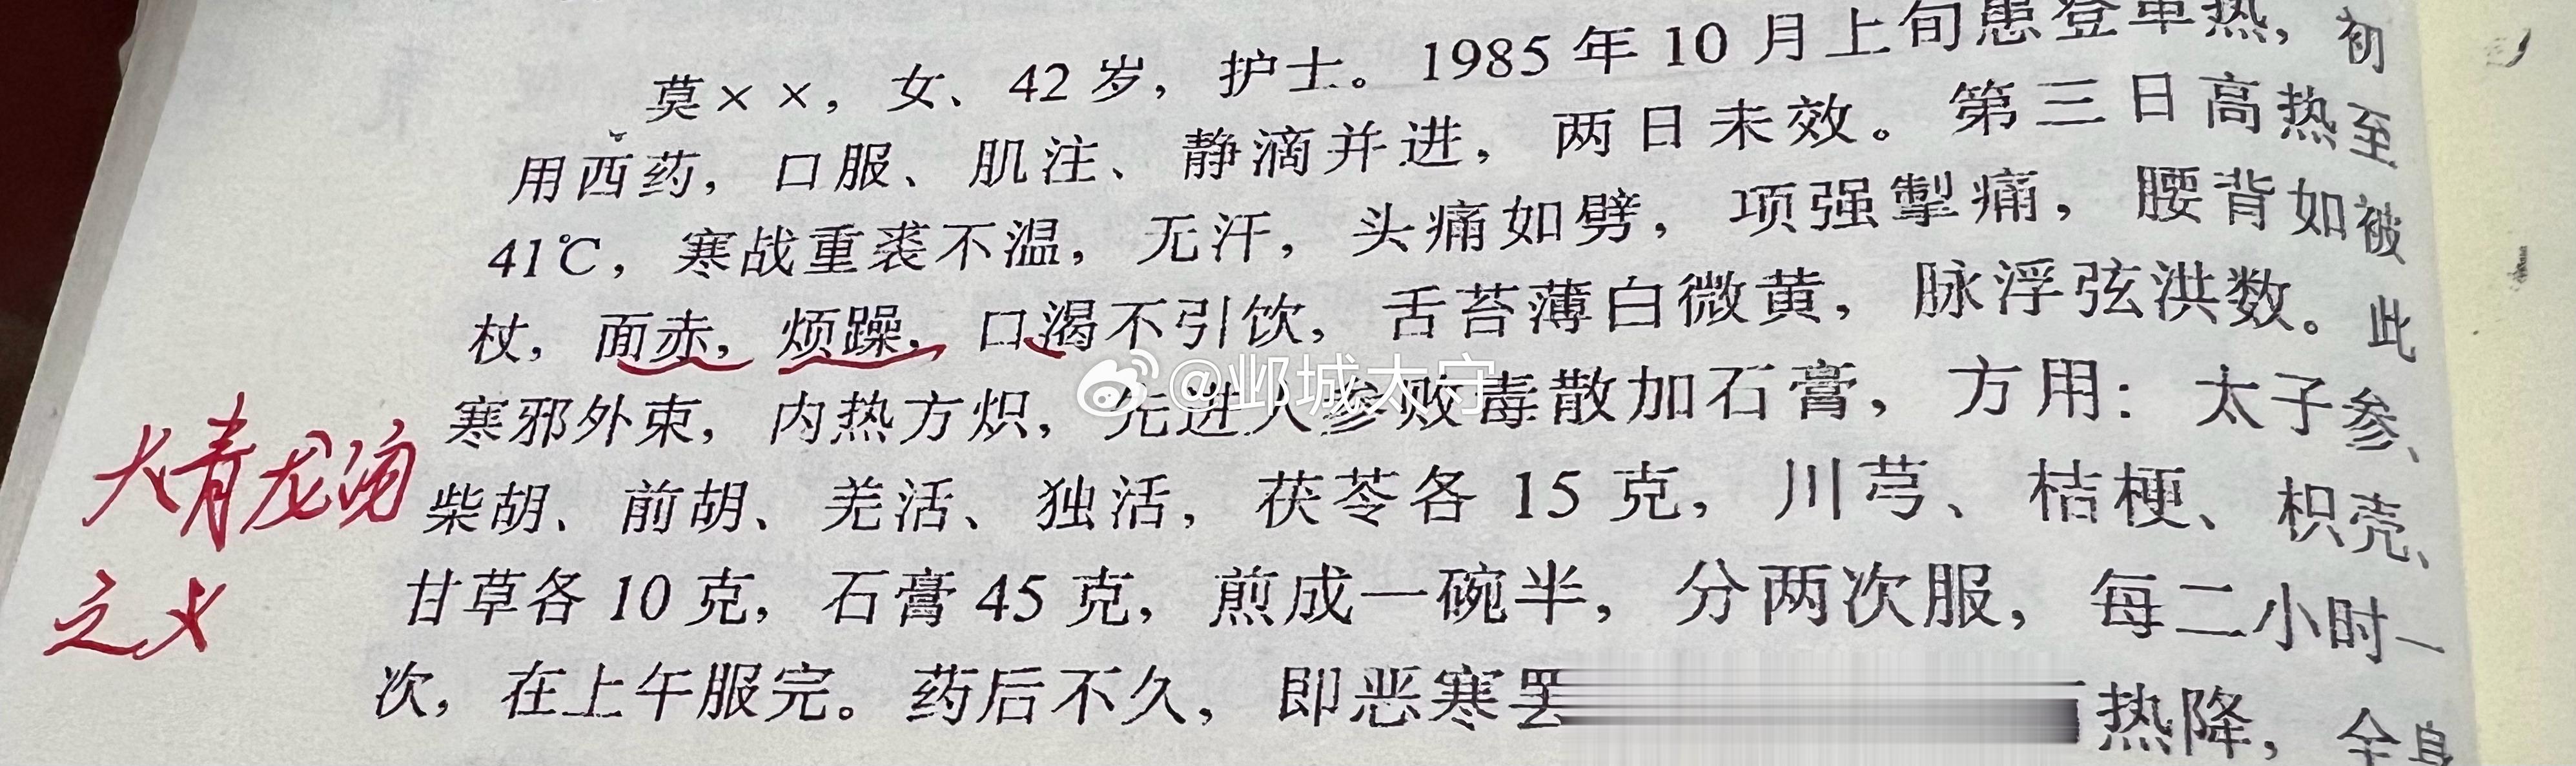 莫××，女、42岁，护士。1985年10月上旬患登革热，初
用西药，口服、肌注、静滴并进，两日未效。第三日高热至
41℃，寒战重裘不温，无汗，头痛如劈，项强掣痛，腰背如被
杖，面赤，烦躁，口渴不引饮，舌苔薄白微黄，脉浮弦洪数。此
寒邪外束，内热方炽，先进人参败毒散加石膏，方用：太子参、
柴胡、前胡、羌活、独活，茯苓各15克，川芎、桔梗、枳壳、
甘草各10克，石膏45克，煎成一碗半，分两次服，每二小时一
次，在上午服完。药后不久，即恶寒罢
热降，全身
大青龙汤
之义
@邺城太守